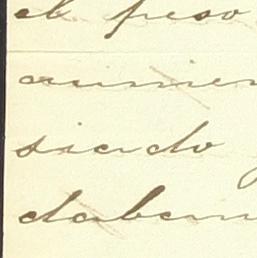 el peso
aumen
siendo
daban